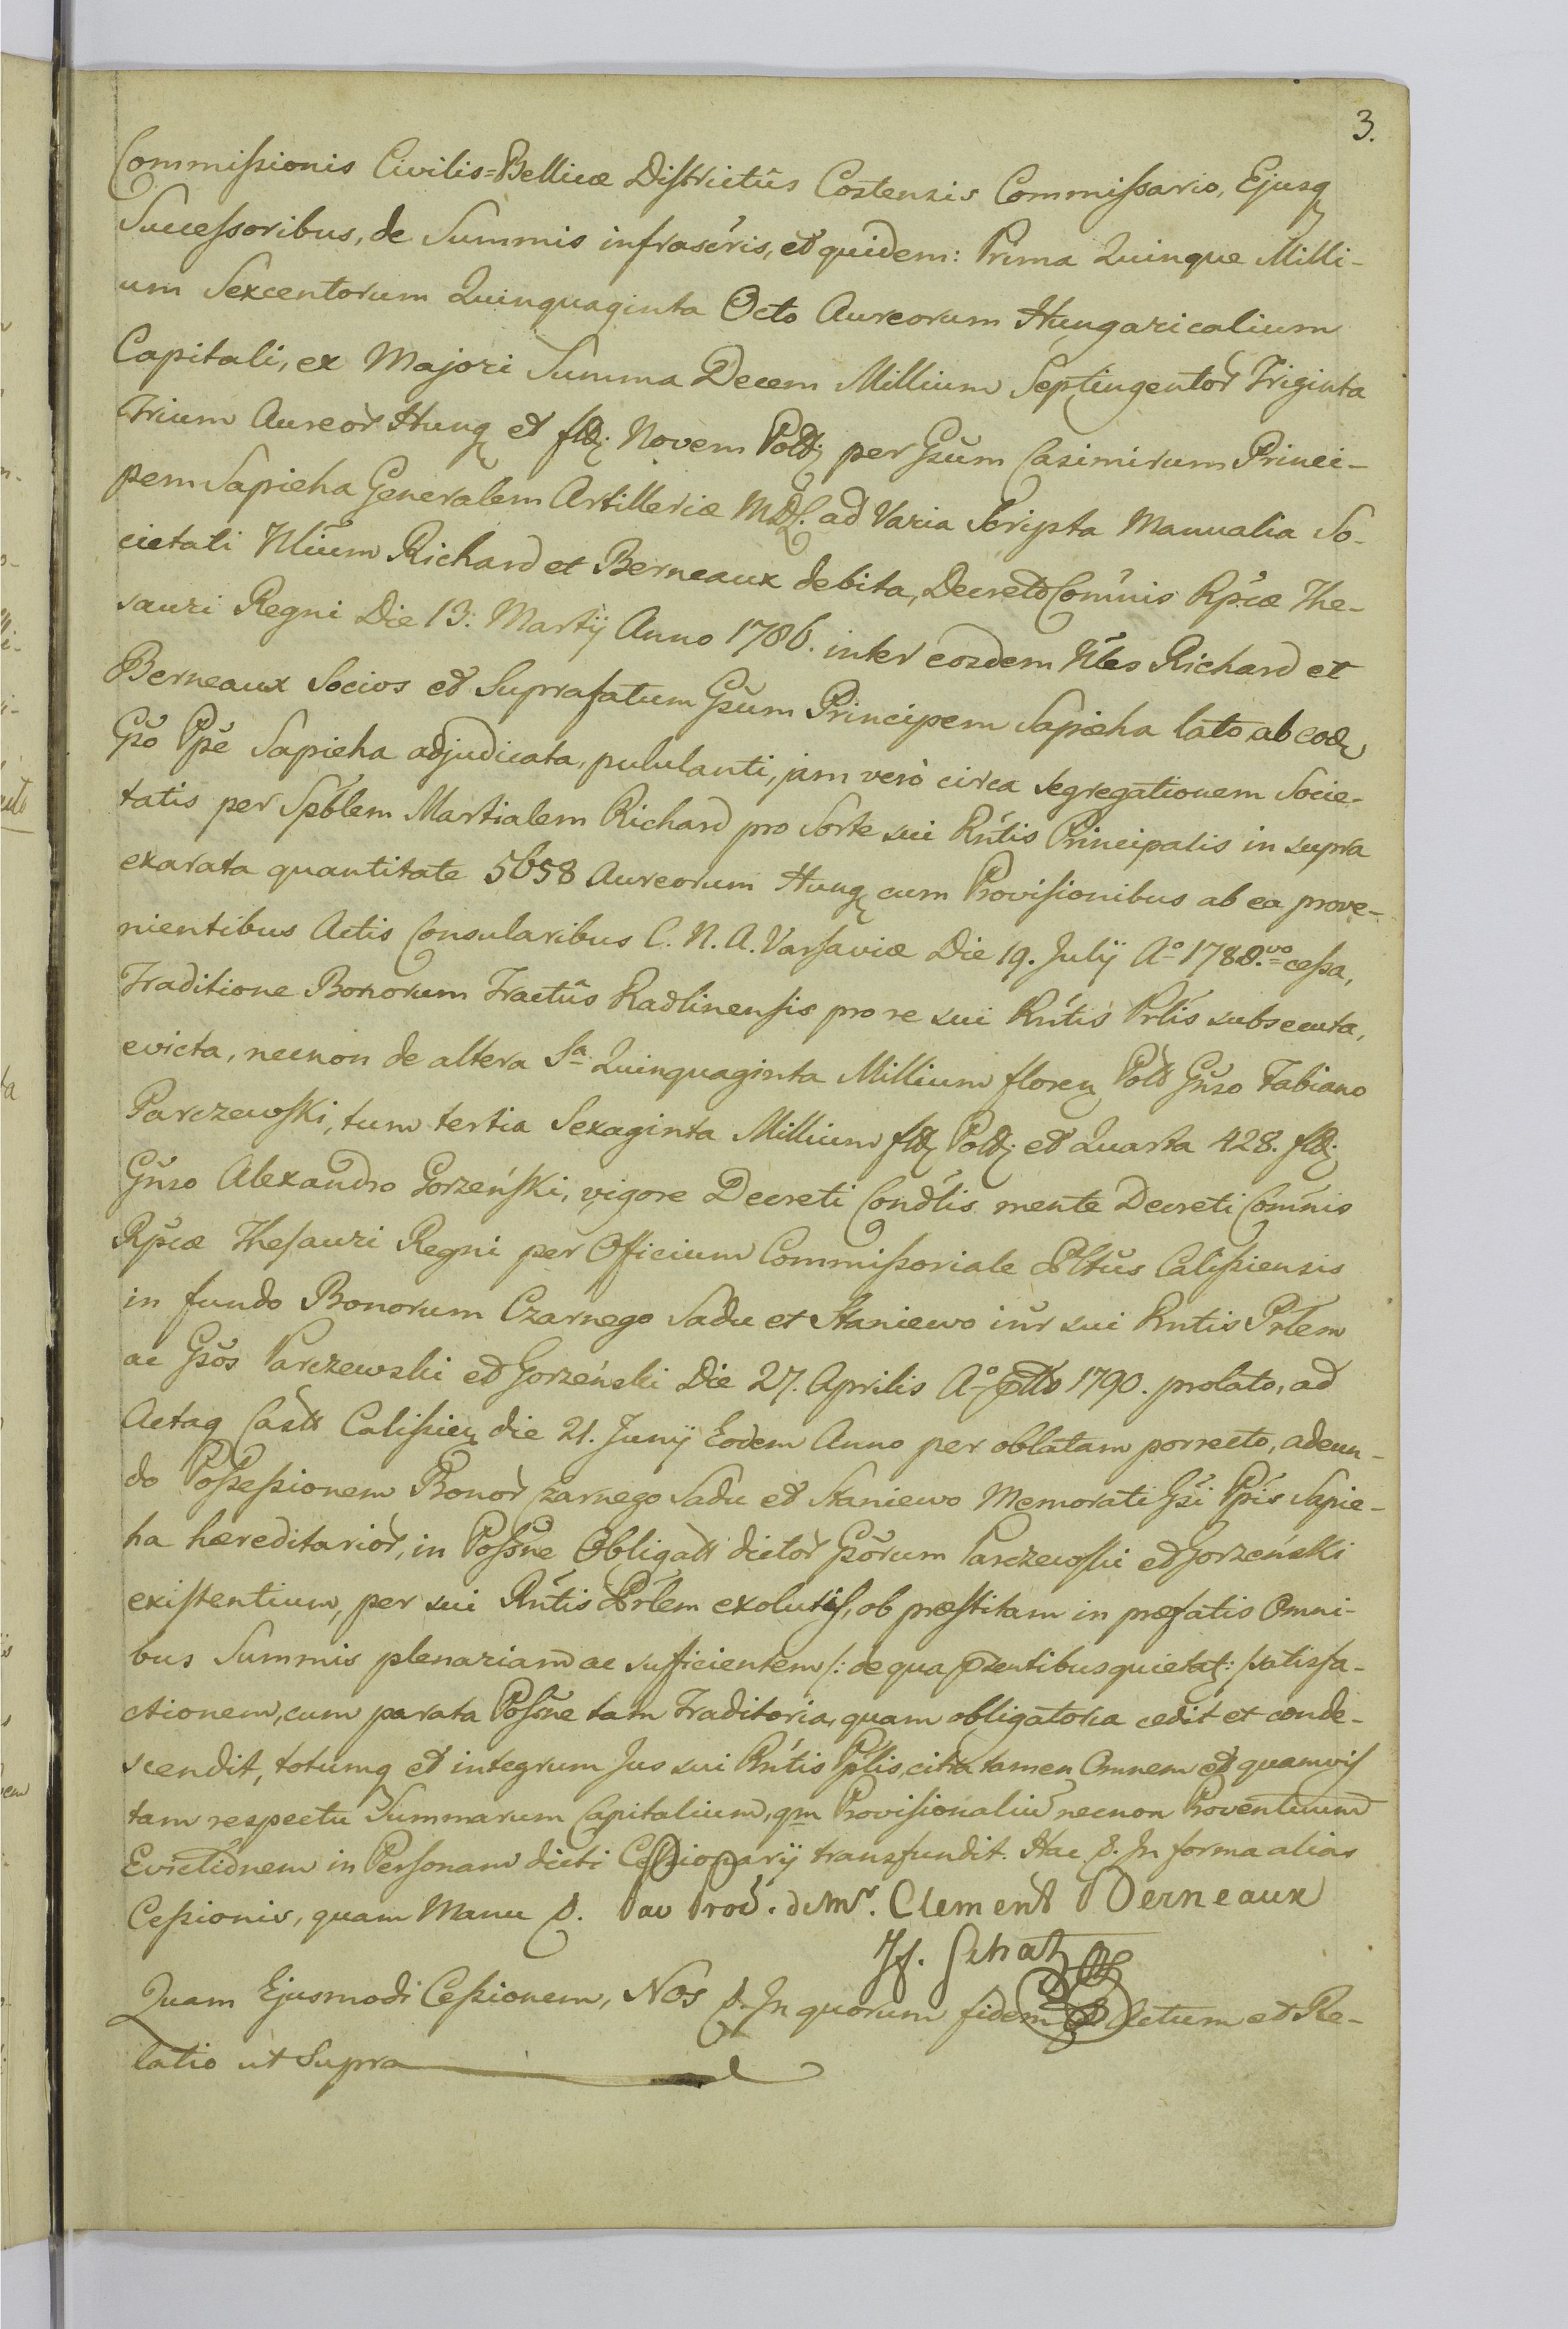 3.
Commißionis Civilis=Bellicæ Districtûs Costensis Commißario, Ejusq
Succeßoribus, de Summis infrascris, et quidem: Prima Quinque Milli-
um Sexcentorum Quinquaginta Octo Aureorum Hungaricalium
Capitali, ex Majori Summa Decem Millium Septingentor Triginta
Trium Aureor Hung et flor Novem Pold per Gsum Casimirum Princi-
pem Sapieha Generalem Artilleriæ MDL. ad Varia Scripta Manualia So-
cietati Nlium Richard et Berneaux debita, Decreto Comnis Rpcæ The-
sauri Regni Die 13. Martij Anno 1786. inter eosdem Nles Richard et
Berneaux Socios et Suprafatum Gsum Principem Sapieha lato ab eod
Gso Ppe Sapieha adjudicata, pululanti, jam verò circa segregationem Socie-
tatis per Spblem Martialem Richard pro Sorte sui Rntis Principalis in supra
exarata quantitate 5658 Aureorum Hung cum Provisionibus ab ea prove-
nientibus Actis Consularibus C. N. A. Varsaviæ Die 19. Julij Aº 1788.vo ceßa,
Traditione Bonorum Tractûs Radlinensis pro re sui Rntis Prlis subsecuta,
evicta, necnon de altera Sa Quinquaginta Millium floren Pold Gnso Fabiano
Parczewski, tum tertia Sexaginta Millium flor Pold et Quarta 428. flor
Gnso Alexandro Gorzeński, vigore Decreti Condlis mente Decreti Comnis
Rpcæ Thesauri Regni per Officium Commißoriale Pltus Calißiensis
in fundo Bonorum Czarnego Sadu et Staniewo intr sui Rntis Prlem
ac Gsos Parczewski et Gorzeński Die 27. Aprilis Aº 1790. prolato, ad
Actaq Castr Calißien die 21. Junij Eodem Anno per oblatam porrecto, adeun-
do Poßeßionem Bonor Czarnego Sadu et Staniewo Memorati Gsi Ppis Sapie-
ha hæreditarior, in Poßne Obligatt dictor Gsorum Parczewski et Gorzeński
existentium, per sui Rntis Prlem exolutis, ob præstitam in præfatis Omni-
bus Summis plenariam ac sufficientem /: de qua pæntibus quietat :/ satisfa-
ctionem, cum parata Poßne tam Traditoria, quam obligatoria cedit et conde-
scendit, totumq et integrum Jus sui Rntis Pplis, citra tamen Omnem et quamvis
tam respectu Summarum Capitalium, qm Provisionaliu necnon Proventuum
Evictionem in Personam dicti Ceßionarij transfundit. Hac p. In forma alias
Ceßionis, quam Manu p. Par Proc. de Mr. Clement Berneaux
Schatz
Quam Ejusmodi Ceßionem, Nos p. In quorum fidem p. Actum et Re-
latio ut Supra